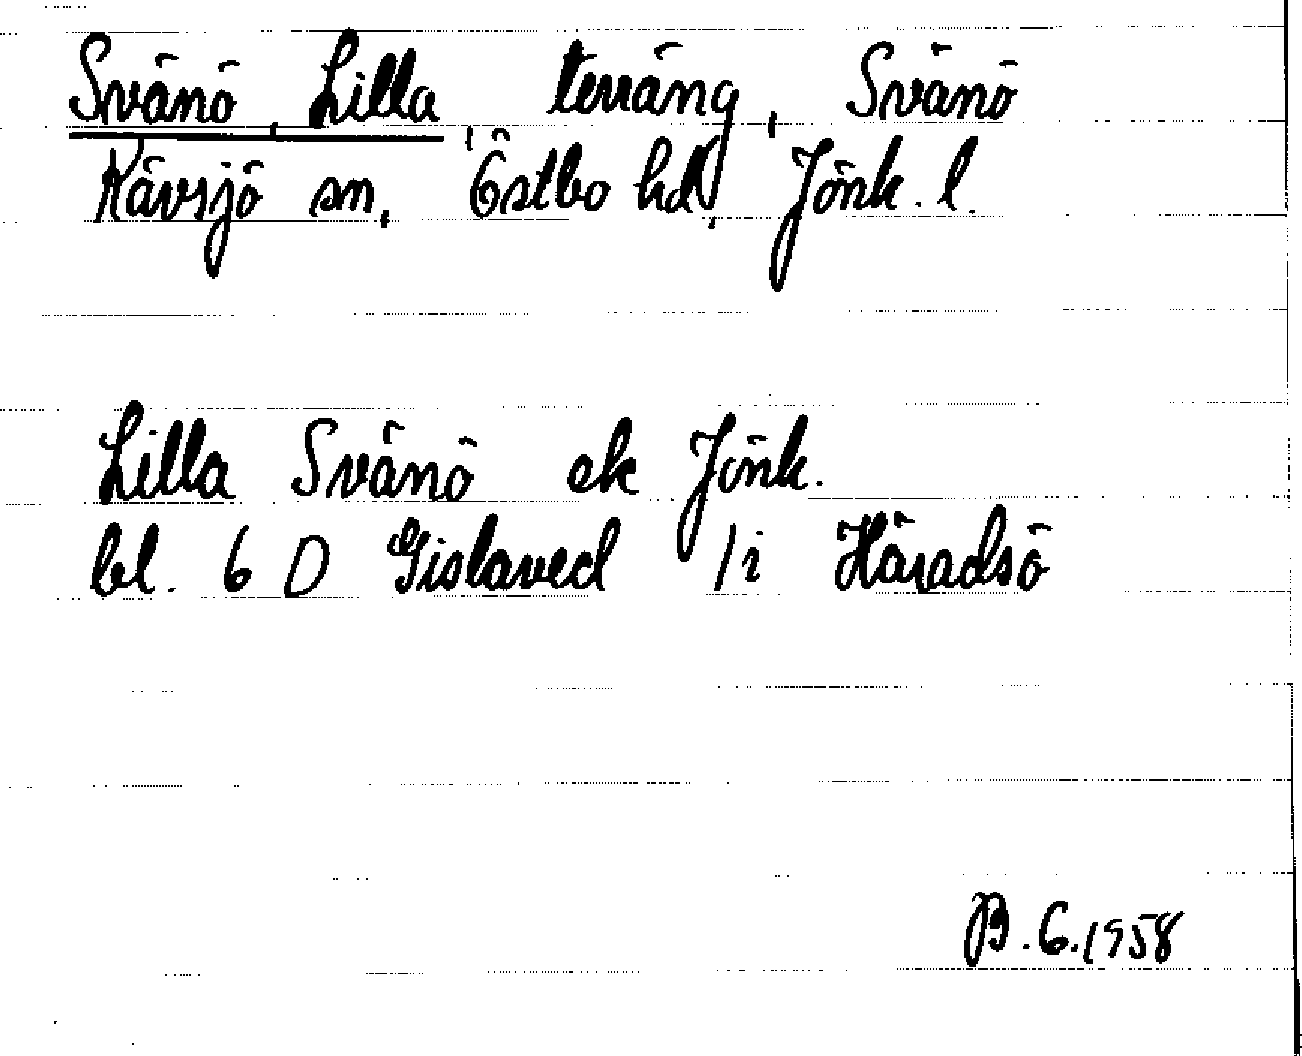 Svänö, Lilla, terräng, Svänö
Kävsjö sn, Östbo hd, Jönk. l.
Lilla Svänö ek Jönk.
bl. 6 D Gislaved /i Häradsö
B.G.1958